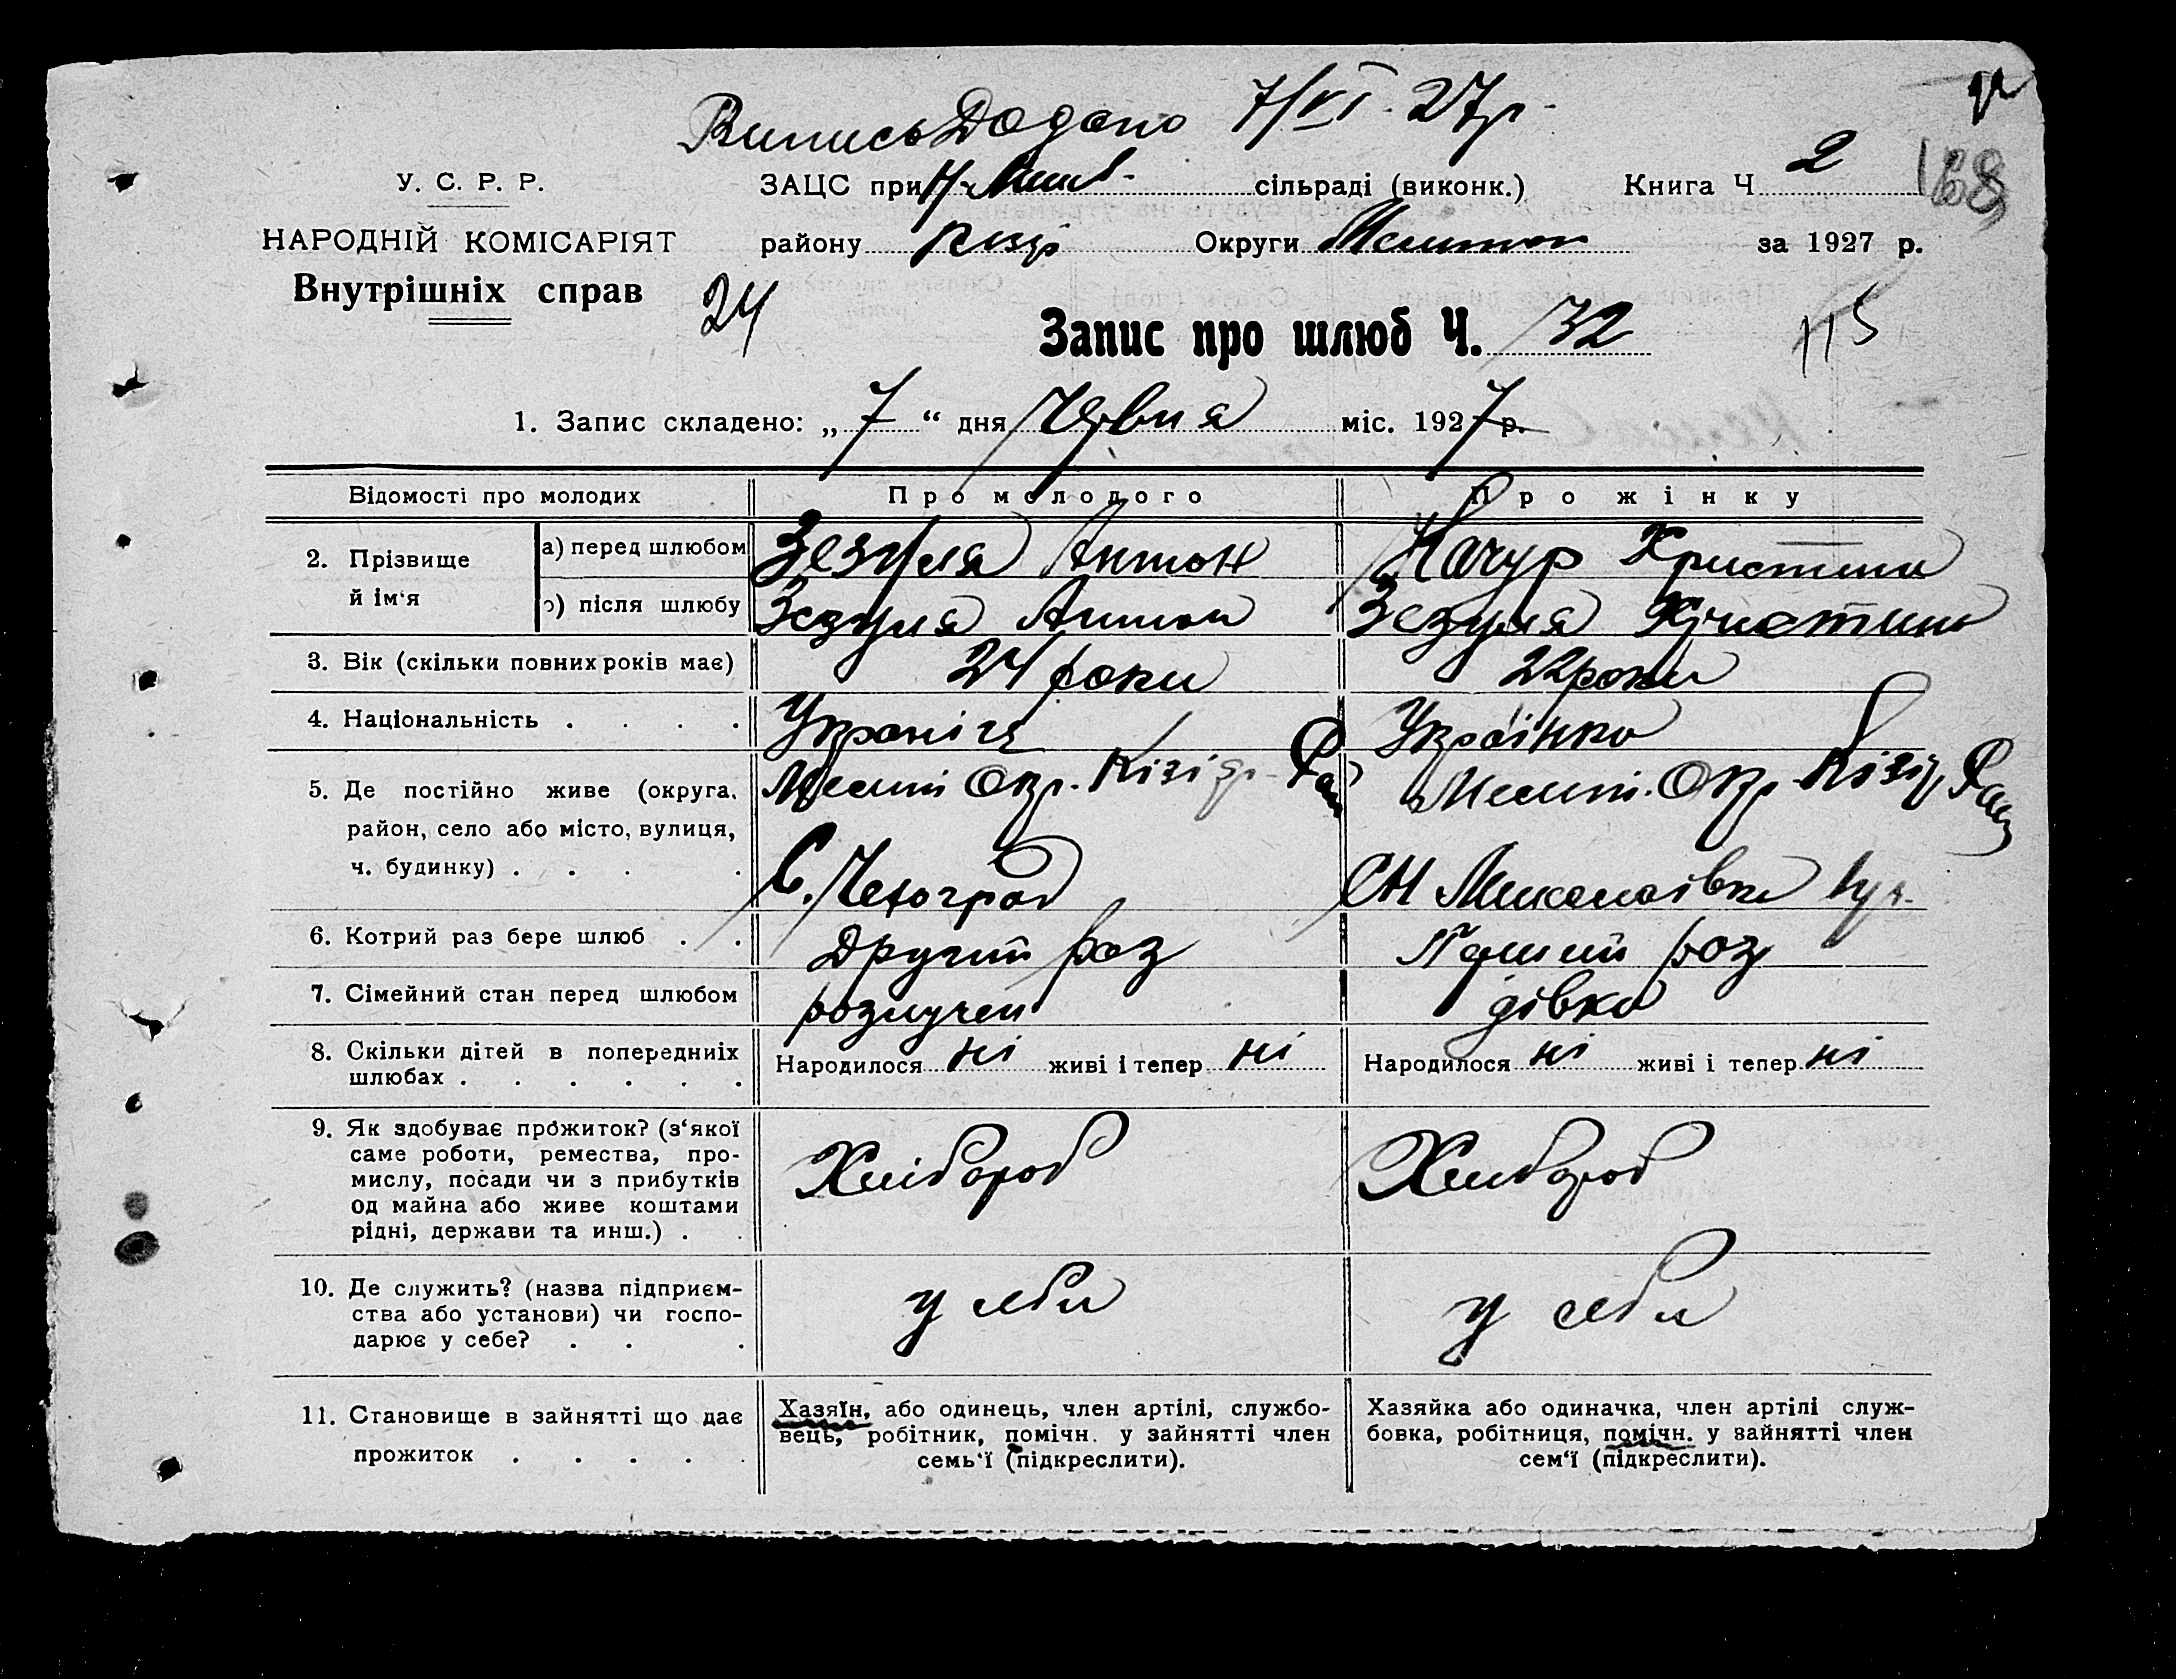 Випись Додано 7/VI. 27р.
У. С. Р. Р.
ЗАЦС при Н-Мик. сільраді (виконк.) Книга Ч 2
168
НАРОДНІЙ КОМІСАРІЯТ
району Кізір Округи Мелитоп за 1927 р.
Внутрішніх справ
24
Запис про шлюб Ч. 32
115
1. Запис складено: „ 7 “ дня Червня міс. 1927 р.
Відомості про молодих Про молодого Про жінку
2. Прізвище й ім‘я
а) перед шлюбом Зезуля Антон Качур Христина
б) після шлюбу Зезуля Антон Зезуля Христина
3. Вік (скільки повних років має) 24 роки 22 роки
4. Національність . . . . Українец Українка
5. Де постійно живе (округа, Мелит. Окр. Кізіяр. Рай Мелит. Окр Кізіяр Рай
район, село або місто, вулиця,
ч. будинку) . . . . С. Чехоград С Н Миколаївка
6. Котрий раз бере шлюб . . Другий раз Перший раз
7. Сімейний стан перед шлюбом розлучен дівка
8. Скільки дітей в попередниіх
шлюбах . . . . . .
Народилося ні живі і тепер ні Народилося ні живі і тепер ні
9. Як здобуває прожиток? (з‘якої
саме роботи, ремества, про-
мислу, посади чи з прибутків
од майна або живе коштами
рідні, держави та инш.) . .
Хлібороб Хлибороб
10. Де служить? (назва підприєм-
ства або установи) чи госпо-
дарює у себе? . . .
у себи у себи
11. Становище в зайнятті що дає
прожиток . . . . .
Хазяїн, або одинець, член артілі, службо-
вець, робітник, помічн. у зайнятті член
семь‘ї (підкреслити).
Хазяйка або одиначка, член артілі служ-
бовка, робітниця, помічн. у зайнятті член
сем‘ї (підкреслити).